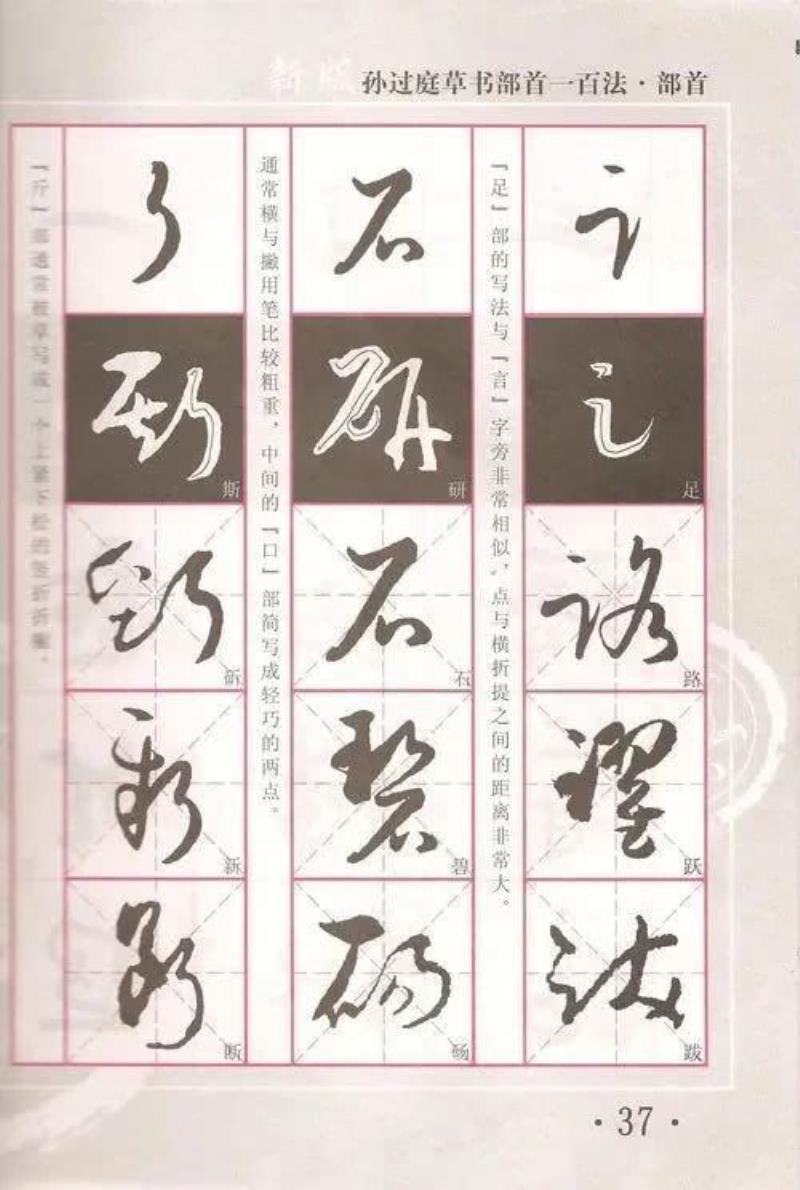 新版
孙过庭草书部首一百法·部首
足
路
跃
跋
『足』部的写法与『言』字旁非常相似，点与横折提之间的距离非常大。
研
石
碧
砀
通常横与撇用笔比较粗重，中间的『口』部简写成轻巧的两点。
斯
斫
新
断
『斤』部通常被草写成一个上紧下松的竖折折撇。
·37·